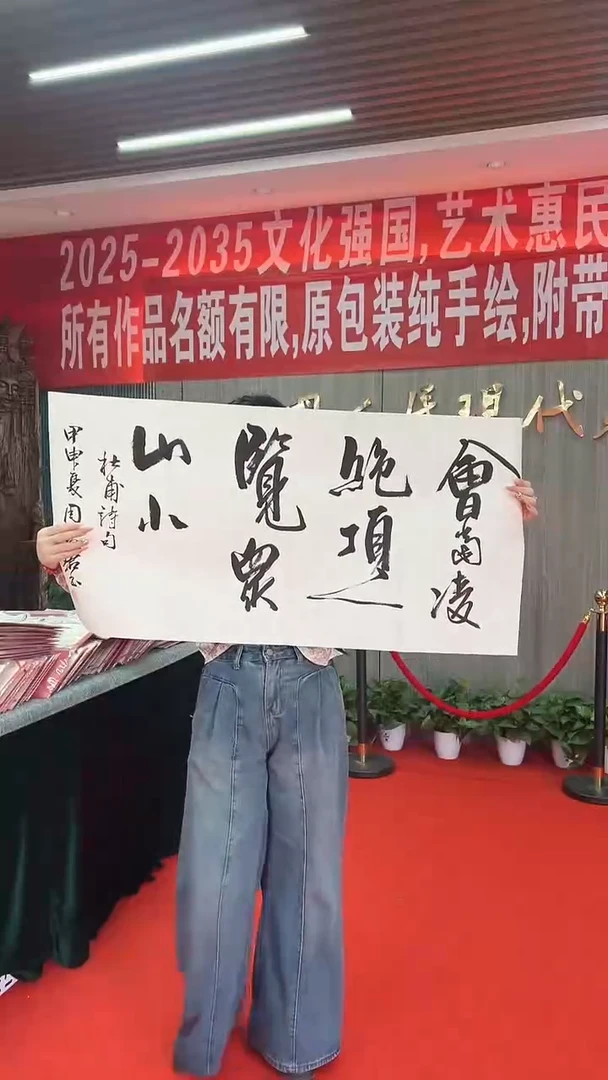 2025-2035文化强国,艺术惠民
所有作品名额有限,原包装纯手绘,附带
现代
會當凌
絶頂
覽眾
山小
杜甫詩句
甲申夏周